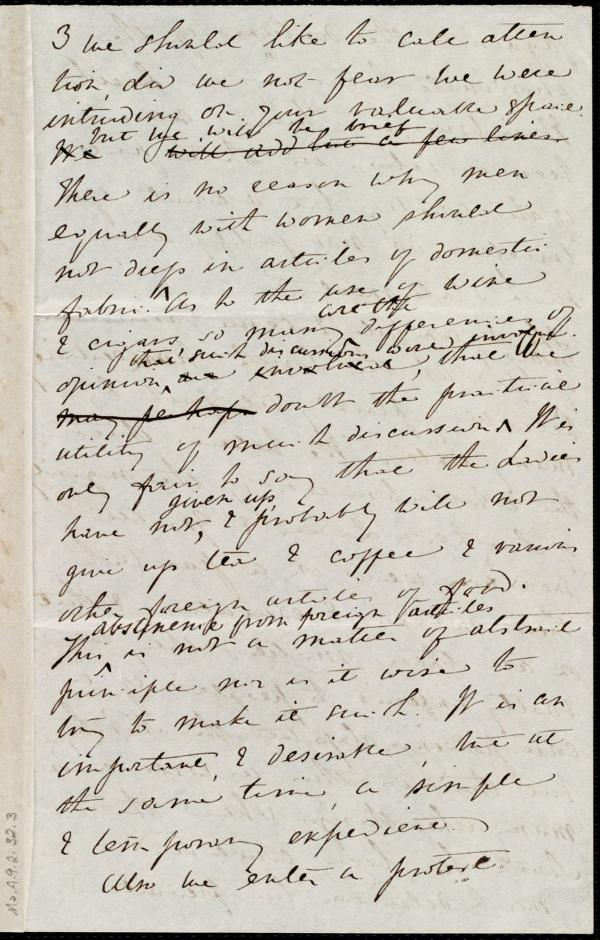 3 we should like to call atten
tion, did we not fear we were
intruding on your valuable space.
but we will be brief
We will add but a few lines.
There is no reason why men
equally with women should
not dress in articles of domestic
fabric. As to the use of wine
are the
& cigars so many differences of
opinion, that such discussions were involved
are involved, that we
may perhaps doubt the practical
utility of much discussion. It is
only fair to say that the Ladies
given up
have not, & probably will not
give up tea & coffee & various
other foreign articles of food.
abstinence from foreign articles
This is not a matter of abstract
principle nor is it wise to
try to make it such. It is an
important, & desirable, but at
the same time, a simple
& temporary expediency.
Also we enter a protest
Ms.A.9.2.32.3